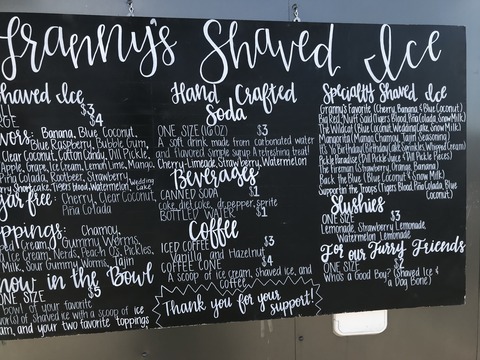 Granny's Shaved Ice
Shaved Ice
$3
GE $4
vors: Banana, Blue Coconut,
Blue Raspberry, Bubble Gum,
Clear Coconut, Cotton Candy, Dill Pickle,
Apple, Grape, Ice Cream, Lemon, Lime, Mango,
Piña Colada, Rootbeer, Strawberry,
Snowcake, Tigers Blood, Watermelon, Wedding Cake
gar free: Cherry, Clear Coconut,
Piña Colada
ppings: Chamoy,
ped Cream, Gummy Worms,
Ice Cream, Nerds, Peach O's, Pickles,
Milk, Sour Gummy Worms, Tajin
now in the Bowl
ONE SIZE $5
bowl of your favorite
vor(s) of shaved ice with a scoop of ice
am, and your two favorite toppings
Hand Crafted
Soda
ONE SIZE (16 OZ) $3
A soft drink made from carbonated water
and flavored simple syrup. A refreshing treat!
Cherry-Limeade, Strawberry, Watermelon
Beverages
CANNED SODA $1
coke, diet coke, dr. pepper, sprite
BOTTLED WATER $1
Coffee
ICED COFFEE $3
Vanilla and Hazelnut
COFFEE CONE $4
A scoop of ice cream, shaved ice, and
coffee
Thank you for your
support!
Specialty Shaved Ice
Granny's Favorite (Cherry, Banana, & Blue Coconut)
Big Red, Nuff Said (Tigers Blood, Piña Colada, Snow Milk)
The Wildcat (Blue Coconut, Wedding Cake, Snow Milk)
Mangonada (Mango, Chamoy, Tajin Seasoning)
It's My Birthday! (Birthday Cake, Sprinkles, Whipped Cream)
Pickle Paradise (Dill Pickle Juice & Dill Pickle Pieces)
The Fireman (Strawberry, Orange, Banana)
Back the Blue (Blue Coconut & Snow Milk)
Support the Troops (Tigers Blood, Piña Colada, Blue
Coconut)
Slushies
ONE SIZE $3
Lemonade, Strawberry Lemonade,
Watermelon Lemonade
For our Furry Friends
ONE SIZE $2
Who's a Good Boy? (Shaved Ice &
a Dog Bone)